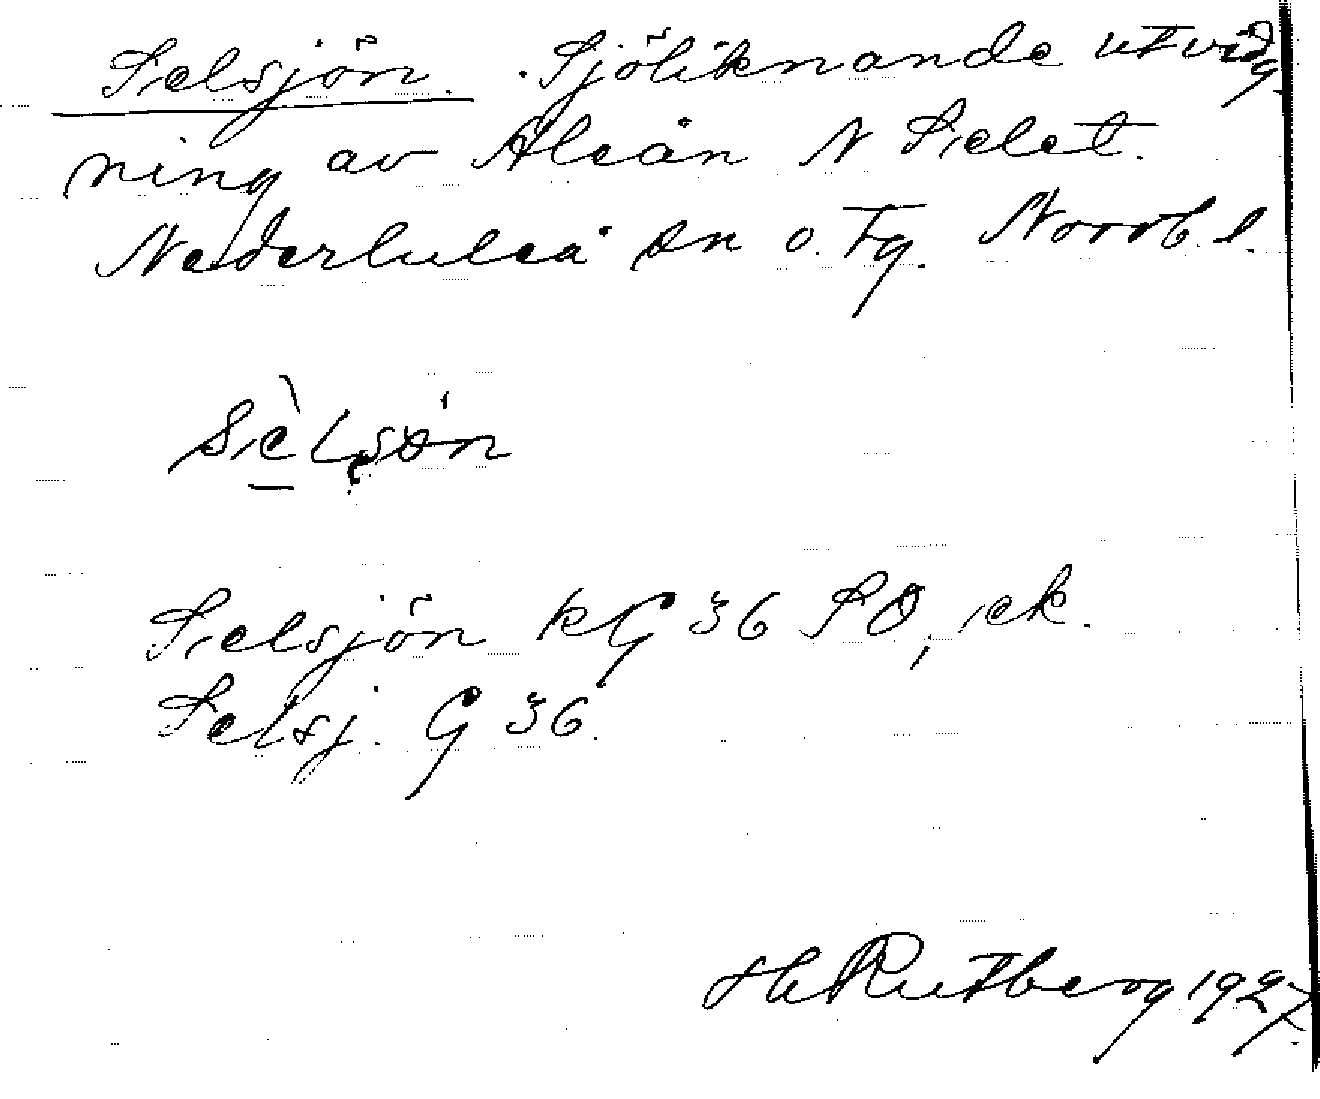 Selsjön. Sjöliknande utvidg
ning av Aleån N Selet.
Nederluleå sn o. Tg. Norrb. l.
Sèlsön
Selsjön kG 36 SO, ek.
Selsj. G 36.
H Rutberg 1927